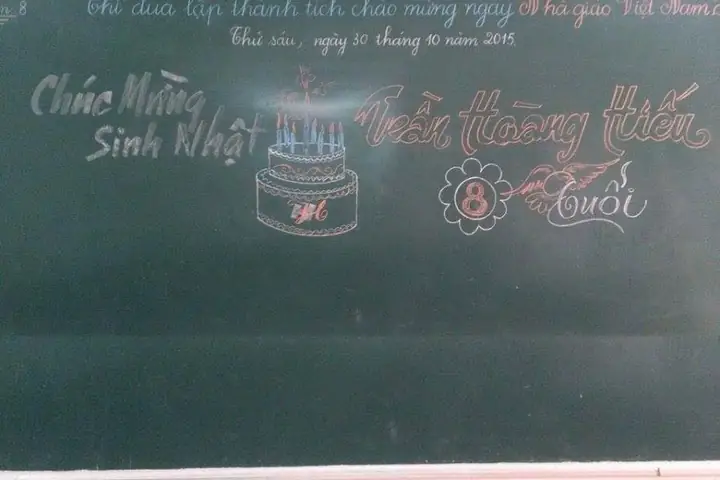 8
Thi đua lập thành tích chào mừng ngày Nhà giáo Việt Nam
Thứ sáu, ngày 30 tháng 10 năm 2015.
Chúc Mừng
Sinh Nhật
Trần Hoàng Hiếu
8 tuổi